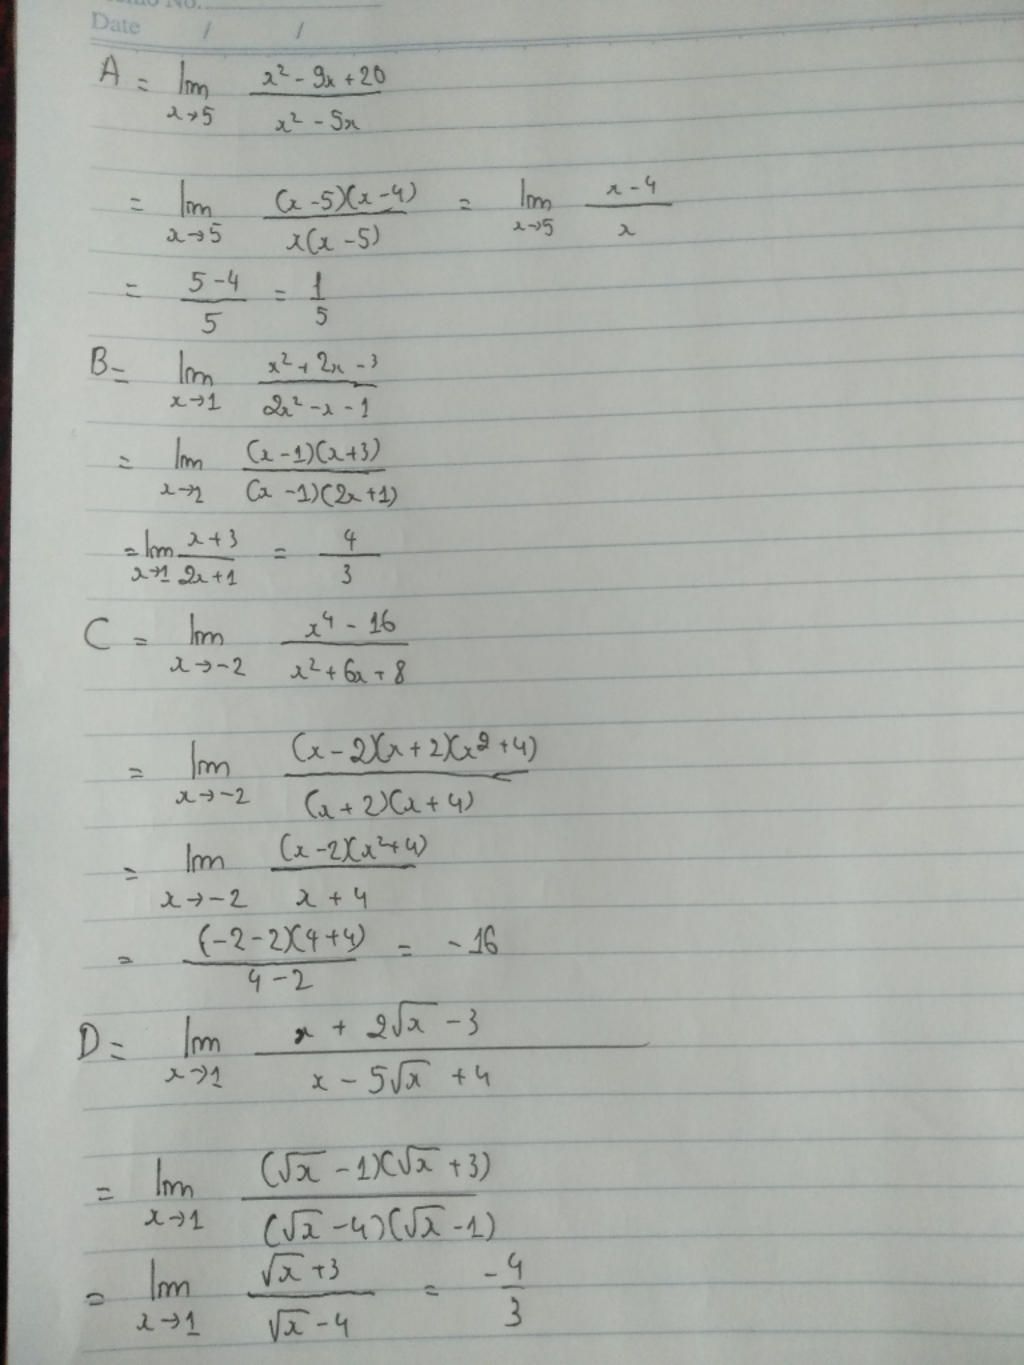 Memo No.
Date / /
A = lim x→5 (x² - 9x + 20)/(x² - 5x)
= lim x→5 ((x-5)(x-4))/(x(x-5)) = lim x→5 (x-4)/x
= (5-4)/5 = 1/5
B = lim x→1 (x² + 2x - 3)/(2x² - x - 1)
= lim x→1 ((x-1)(x+3))/((x-1)(2x+1))
= lim x→1 (x+3)/(2x+1) = 4/3
C = lim x→-2 (x⁴ - 16)/(x² + 6x + 8)
= lim x→-2 ((x-2)(x+2)(x²+4))/((x+2)(x+4))
= lim x→-2 ((x-2)(x²+4))/(x+4)
= ((-2-2)(4+4))/(4-2) = -16
D = lim x→1 (x + 2√x - 3)/(x - 5√x + 4)
= lim x→1 ((√x - 1)(√x + 3))/((√x - 4)(√x - 1))
= lim x→1 (√x + 3)/(√x - 4) = -4/3